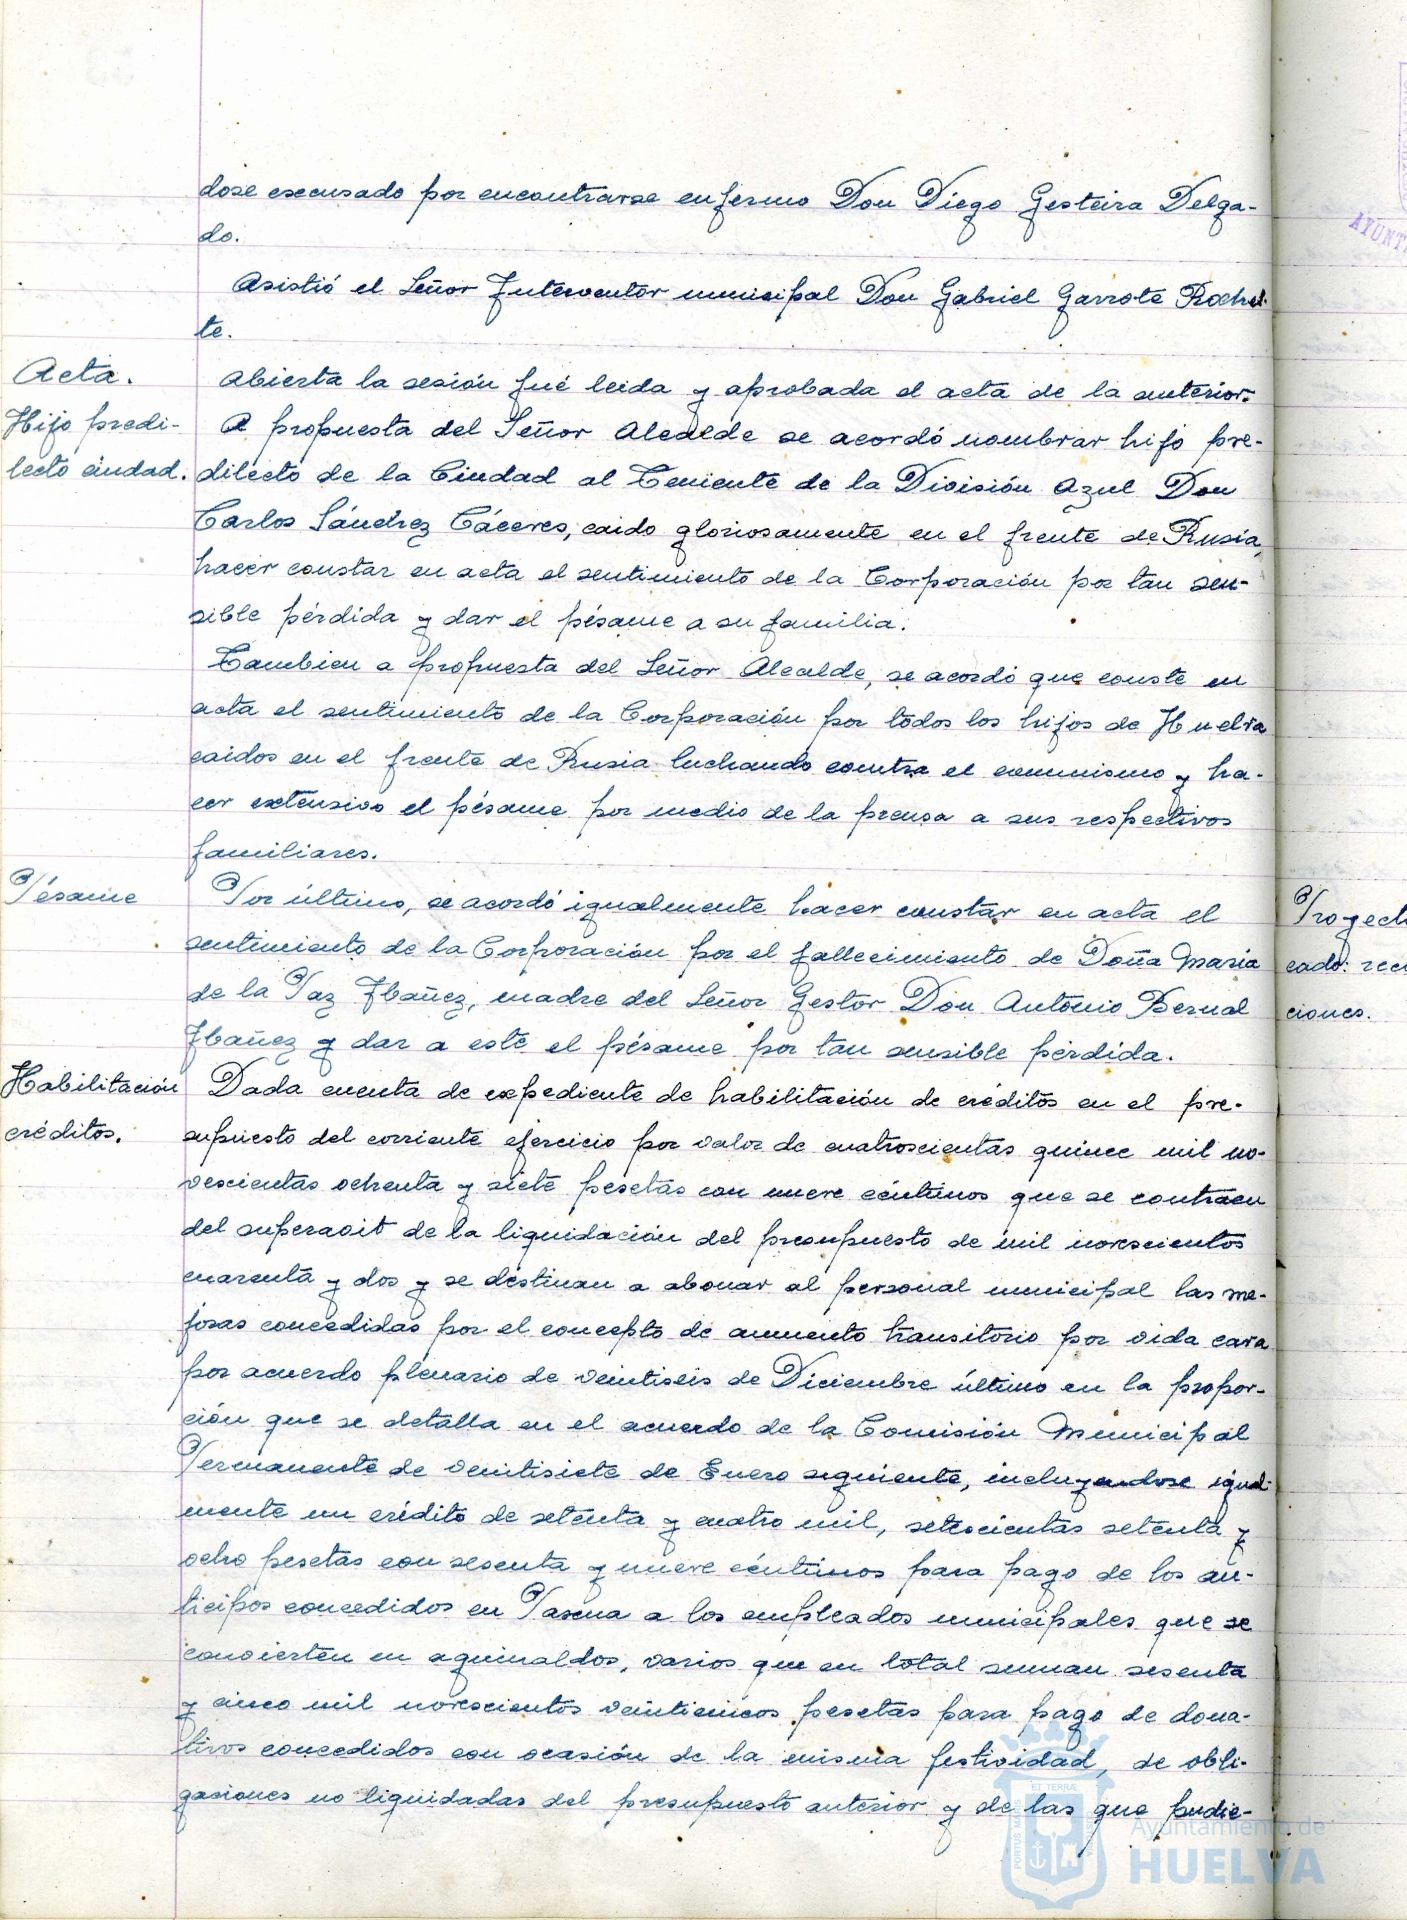 dose excusado por encontrarse enfermo Don Diego Gesteira Delga-
do.
Asistió el Señor Interventor municipal Don Gabriel Garrote Rochel-
te.
Acta.
Abierta la sesión fué leida y aprobada el acta de la anterior.
Hijo predi-
lecto ciudad.
A propuesta del Señor Alcalde se acordó nombrar hijo pre-
dilecto de la Ciudad al Teniente de la División Azul Don
Carlos Sánchez Cáceres, caido gloriosamente en el frente de Rusia,
hacer constar en acta el sentimiento de la Corporación por tan sen-
sible pérdida y dar el pésame a su familia.
Tambien a propuesta del Señor Alcalde, se acordó que conste en
acta el sentimiento de la Corporación por todos los hijos de Huelva
caidos en el frente de Rusia luchando contra el comunismo y ha-
cer extensivo el pésame por medio de la prensa a sus respectivos
familiares.
Pésame
Por último, se acordó igualmente hacer constar en acta el
sentimiento de la Corporación por el fallecimiento de Doña Maria
de la Paz Ibañez, madre del Señor Gestor Don Antonio Bernal
Ibañez y dar a este el pésame por tan sensible pérdida.
Habilitación
créditos.
Dada cuenta de expediente de habilitación de créditos en el pre-
supuesto del corriente ejercicio por valor de cuatroscientas quince mil no-
vescientas ochenta y siete pesetas con nueve céntimos que se contraen
del superavit de la liquidación del presupuesto de mil novescientos
cuarenta y dos y se destinan a abonar al personal municipal las me-
joras concedidas por el concepto de aumento transitorio por vida cara
por acuerdo plenario de veintiseis de Diciembre último en la propor-
ción que se detalla en el acuerdo de la Comisión Municipal
Permanente de veintisiete de Enero siguiente, incluyendose igual-
mente un crédito de setenta y cuatro mil, setescientas setenta y
ocho pesetas con sesenta y nueve céntimos para pago de los an-
ticipos concedidos en Pascua a los empleados municipales que se
convierten en aguinaldos, varios que en total suman sesenta
y cinco mil novescientos veinticinco pesetas para pago de dona-
tivos concedidos con ocasión de la misma festividad, de obli-
gaciones no liquidadas del presupuesto anterior y de las que pudie-
Proyect
cado: rec
ciones.
AYUNT
Ayuntamiento de
HUELVA